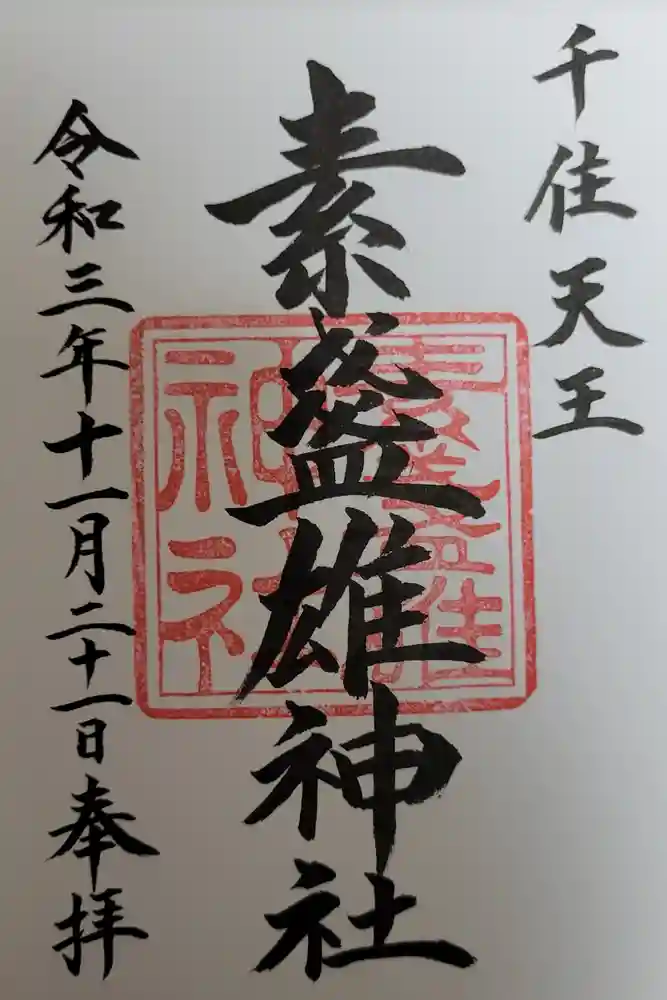 千住天王
素盞雄神社
令和三年十一月二十一日奉拝
素盞雄
神社